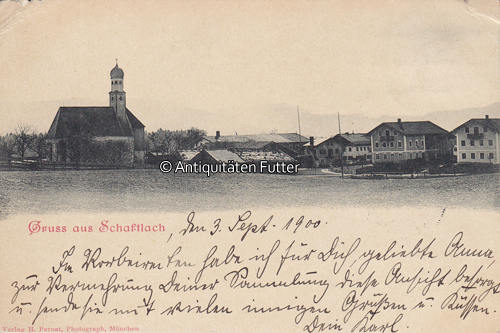 © Antiquitäten Futter
Gruss aus Schaftlach
den 3. Sept. 1900.
Im Vorbeireiten habe ich für Dich, geliebte Anna,
zur Vermehrung Deiner Sammlung diese Ansicht besorgt
u. sende sie mit vielen innigen Grüßen u. Küssen.
Dein Karl.
Verlag H. Pernat, Photograph, München